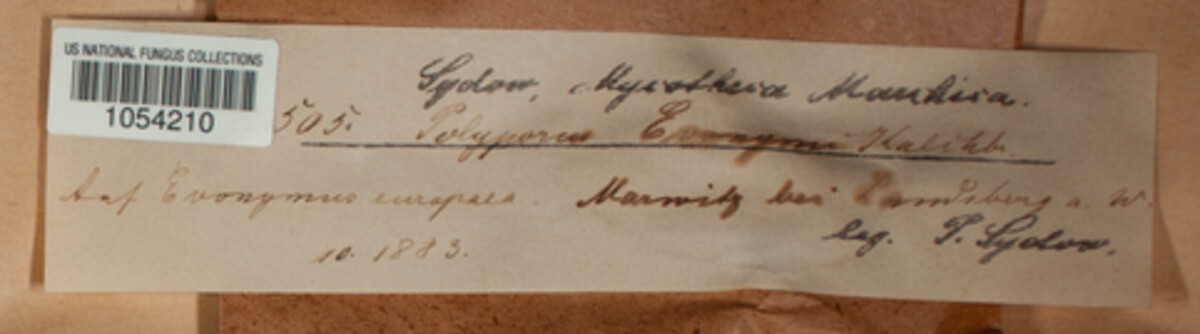 US NATIONAL FUNGUS COLLECTIONS
1054210
Sydow, Mycotheca Marchica.
505. Polyporus Evonymi Kalchbr.
Auf Evonymus europaea. Marwitz bei Landsberg a. W.
leg. P. Sydow.
10. 1883.